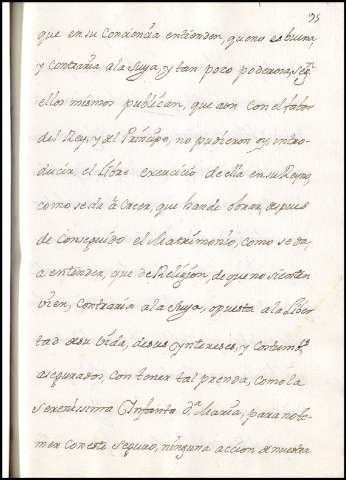 95
que en su Conciencia entienden, que no es buena,
y contraria a la Suya, y tan poco poderosa, segn.
ellos mismos publican, que aon con el fabor
del Rey, y del Principe, no pudieron oy intro-
ducir, el libre exercicio de ella en su Reyno,
como se da à Creer, que han de obrar, despues
de Conseguido el Matrimonio, como se da,
a entender, que de Religion, de que no sienten
vien, Contraria a la Suya, opuesta a la liber
tad de su vida, de sus Yntereses, y Costumbs.
asegurados, con tener tal prenda, como la
Serenissima Ynfanta Da. Maria, para no to-
mer con este Seguro, ninguna accion de nuestra